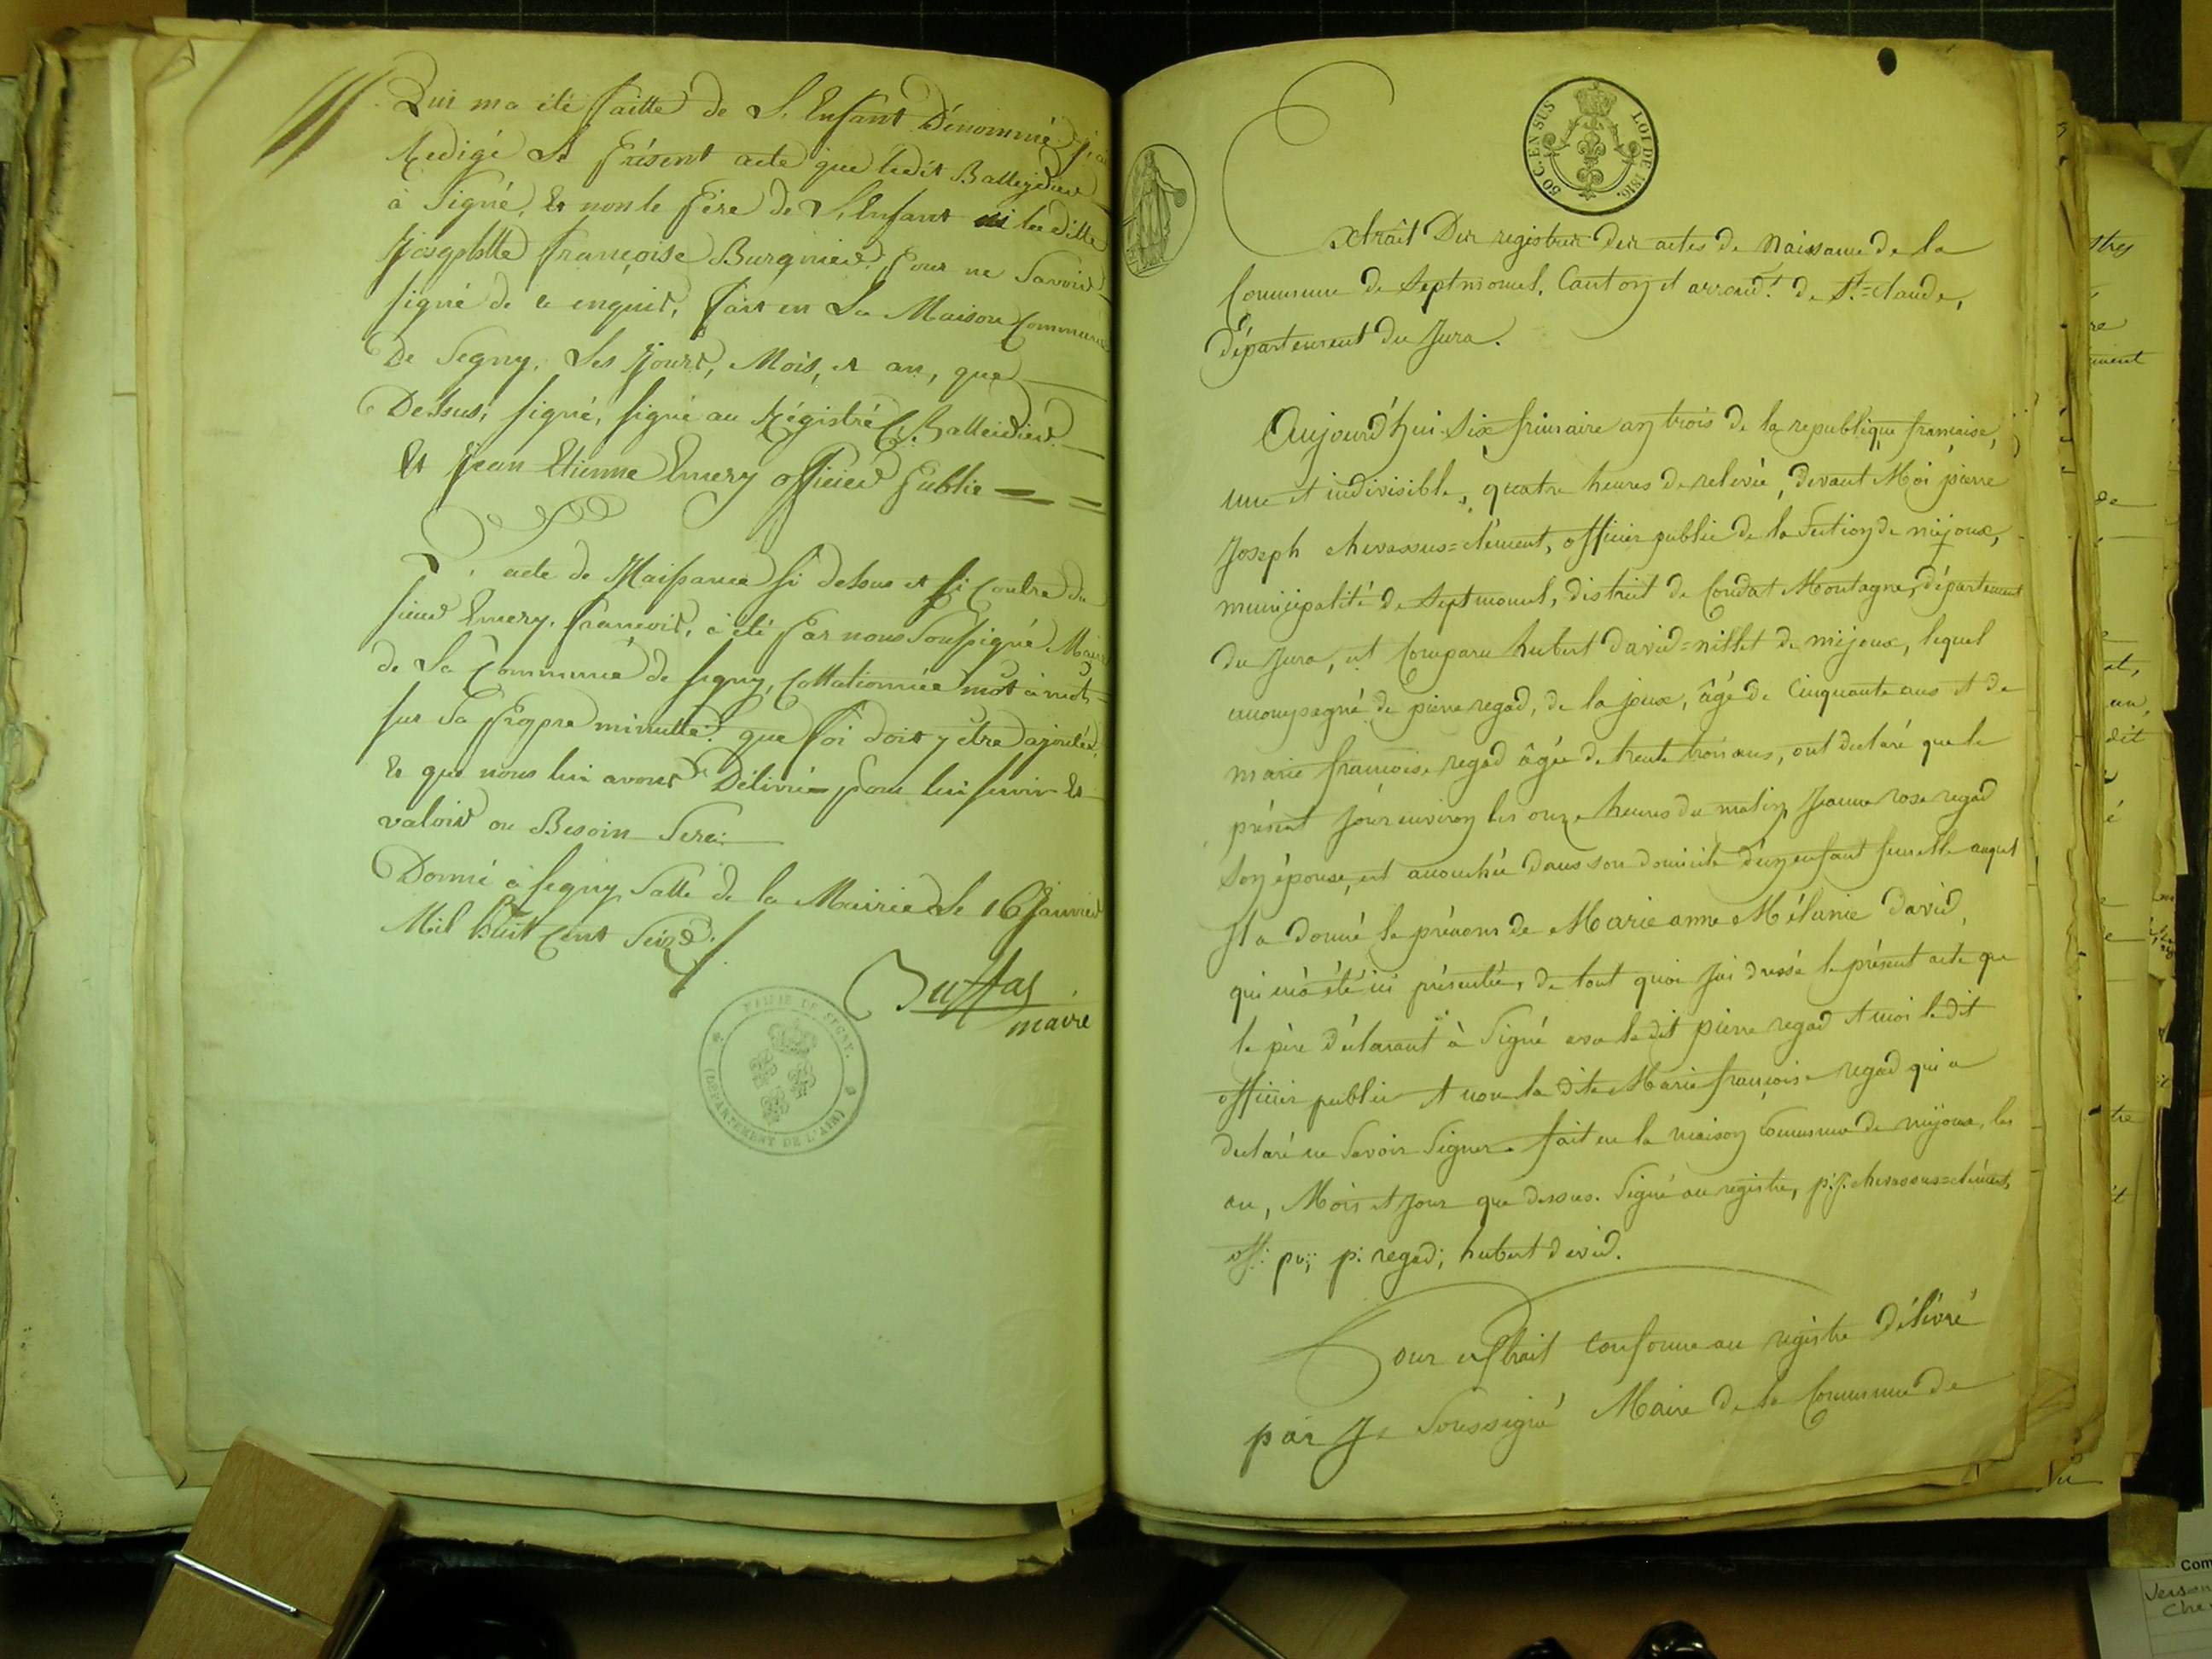 Qui ma été faitte de L'Enfant Dénommé j'ai
Redigé Le Présent acte que ledit Balleydier
à Signé, Et non le Père de L'Enfant ni la ditte
Josephtte françoise Burgnier Pour ne Savoir
signé de ce enquis, fait en La Maison Commune
De Segny, Les Jours, Mois, et an, que
Dessus, signé, signé au Régistré Balleidier
Et Jean Etienne Emery officier Public
L'acte de Naissance si dessus et si Contre du
sieur Emery, françois, à été Par nous Soussigné Maire
de La Commune de Segny, Collationnée mot à mot
sur Sa Propre minutte que foi doit y être ajoutée,
Et que nous lui avons Délivré pour lui servir Et
valoir ou Besoin Sera
Donné à Segny Salle de la Mairie le 16 Janvier
Mil huit Cent Seize
maire
MAIRIE DE SEGNY.
(DÉPARTEMENT DE L'AIN)
50 C. EN SUS
LOI DE 1816.
Extrait Des registres des actes de Naissance de la
Commune de Septmoncel, Canton et arrond.t de St.=claude,
Département du Jura.
Aujourd'hui Six frimaire an trois de la republique francaise,
une et indivisible, quatre heures de relevée, devant Moi pierre
Joseph chevassus=clément, officier public de la Section de mijoux,
municipalité de Septmoncel, district de Condat Montagne, département
du Jura, est Comparu hubert david=nillet de mijoux, lequel
accompagné de pierre regad, de la joux, âgé de Cinquante ans et de
marie francoise regad âgée de trente trois ans, ont declaré que le
présent jour environ les onze heures du matin Jeanne rose regad
Son épouse, est accouchée dans son domicile d'un enfant femelle auquel
Il a donné le prénom de Marie anne Mélanie david,
qui m'a été ici présentée, de tout quoi J'ai dressé le présent acte que
le père déclarant à Signé avec le dit pierre regad et moi le dit
officier public et non la dite Marie françoise regad qui a
declaré ne Savoir Signer. fait en la maison Commune de mijoux, les
an, Mois et Jour que dessus. Signé au registre, p:j. chevassus=clément,
off: pu; p: regad; hubert david.
Pour extrait Conforme au registre Délivré
par Je Soussigné Maire de la Commune de